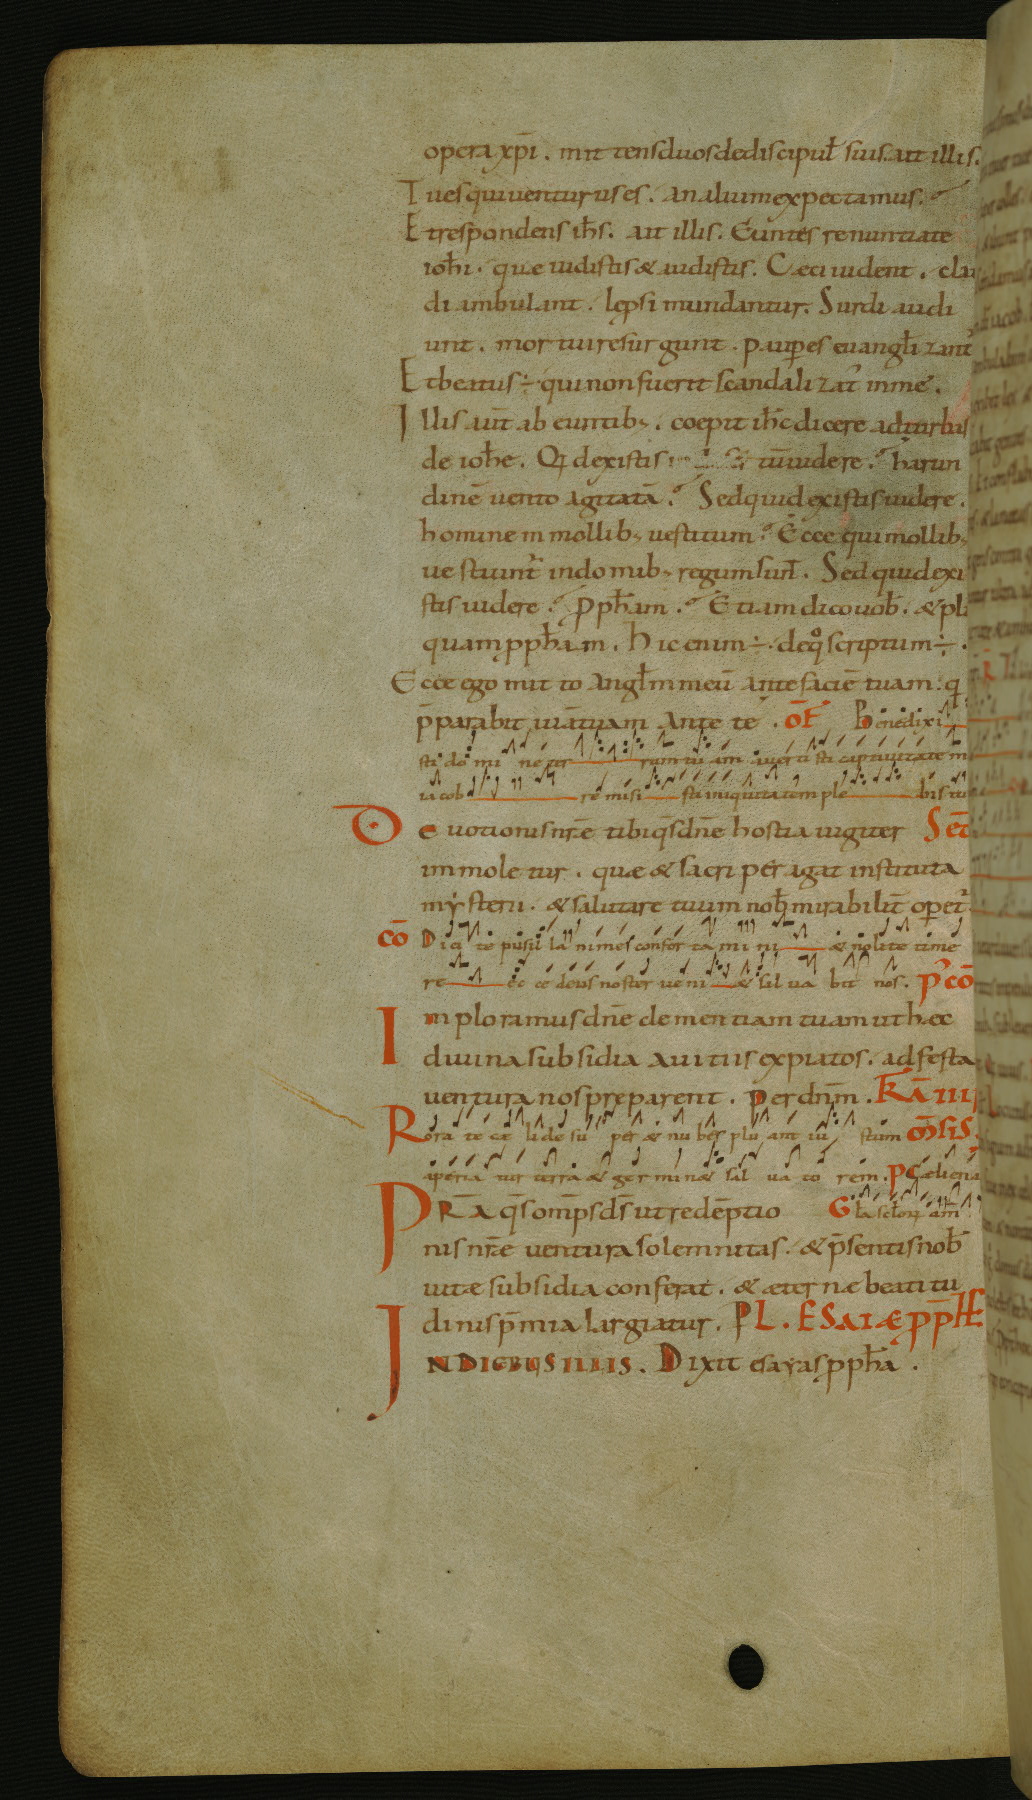 opera xp̄i. mittens duos de discipul̄ suis. ait illis.
Tu es qui venturus es. an alium expectamus.
Et respondens ih̄s. ait illis. Euntes renuntiate
ioh̄i. quæ uidistis & audistis. Cæci uident. clau
di ambulant. leprosi mundantur. Surdi audi
unt. mortui resurgunt. pauꝑes euangl̄izant᷑
Et beatus ÷. qui non fuerit scandalizat᷑ in me.
Illis aut̄ abeuntib;. coepit ih̄c dicere ad turbas
de ioh̄e. Qd existis tū uidere. harun
dinē uento agitatā. Sed quid existis uidere.
homine in mollib; uestitum. Ecce qui mollib;
uestiunt᷑ in domib; regum sunt̄. Sed quid exi
stis uidere. Pph̄am. Etiam dico uob̄. & pl
quam pph̄am. Hic enim ÷. de qͦ scriptum ÷.
Ecce ego mitto angl̄m meū ante faciē tuam. q
p̄parabit uiā tuam ante te. OF̄ Benedixi
sti domine ter ram tuam auertisti captiuitatem
iacob remisisti iniquitatem plebis tu
Deuotionis nr̄e tibi qs̄ dn̄e hostia iugiter Sēt
immoletur. quæ & sacri peragat instituta
mysterii. & salutare tuum nob̄ mirabilit̄ oꝑet᷑
CŌ Dicite pusillanimes confortamini & nolite time
re ecce deus noster ueni & saluabit nos. P᷑CŌ
Imploramus dn̄e clementiam tuam ut hæc
diuina subsidia a uitiis expiatos. ad festa
uentura nos preparent. Per dn̄m. F̄R̄Ā IIII
Rorate cæli desuper & nubes pluant iustum M̄SIS.
aperiatur terra & germin& saluatorem. PS Cæli ena
PRÆSTA qs̄ omp̄s d̄s ut redemptio Gl̄a scl̄orum am̄
nis nr̄e uentura solemnitas. & p̄sentis nob̄
uitæ subsidia conferat. & æternæ beatitu
dinis p̄mia largiatur. PL. ESAIÆ PP̄HE
IN DIEBUS ILLIS. Dixit esayas pph̄a.